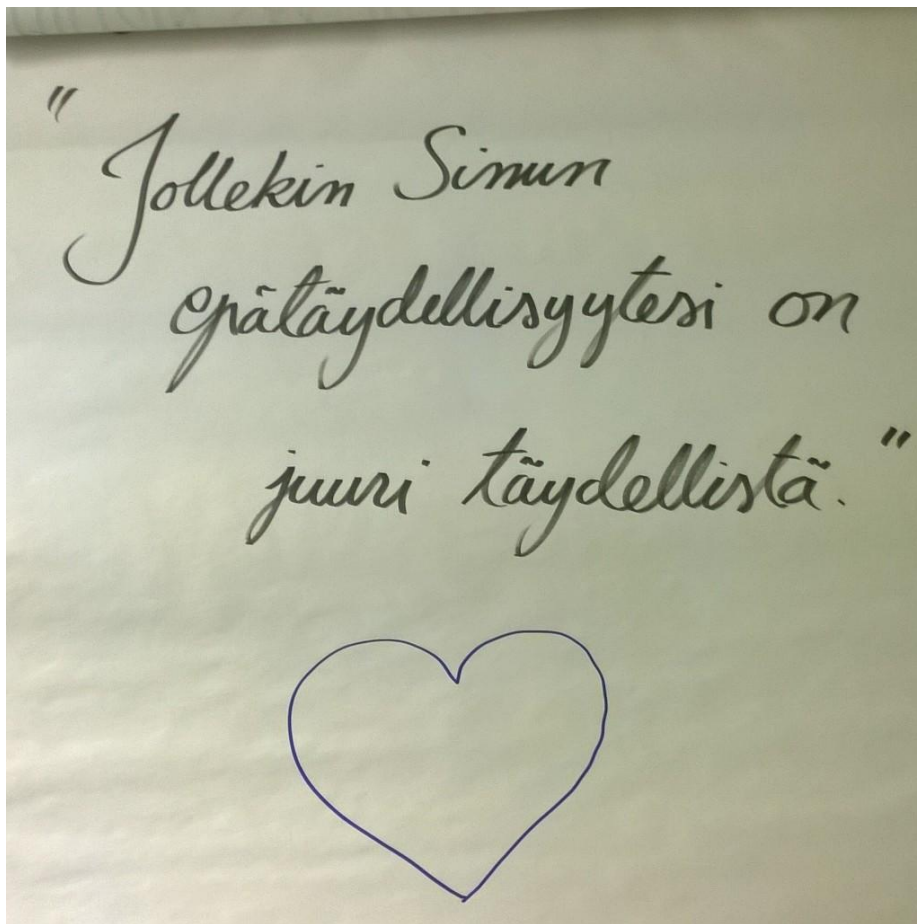 "Jollekin Sinun
epätäydellisyytesi on
juuri täydellistä."